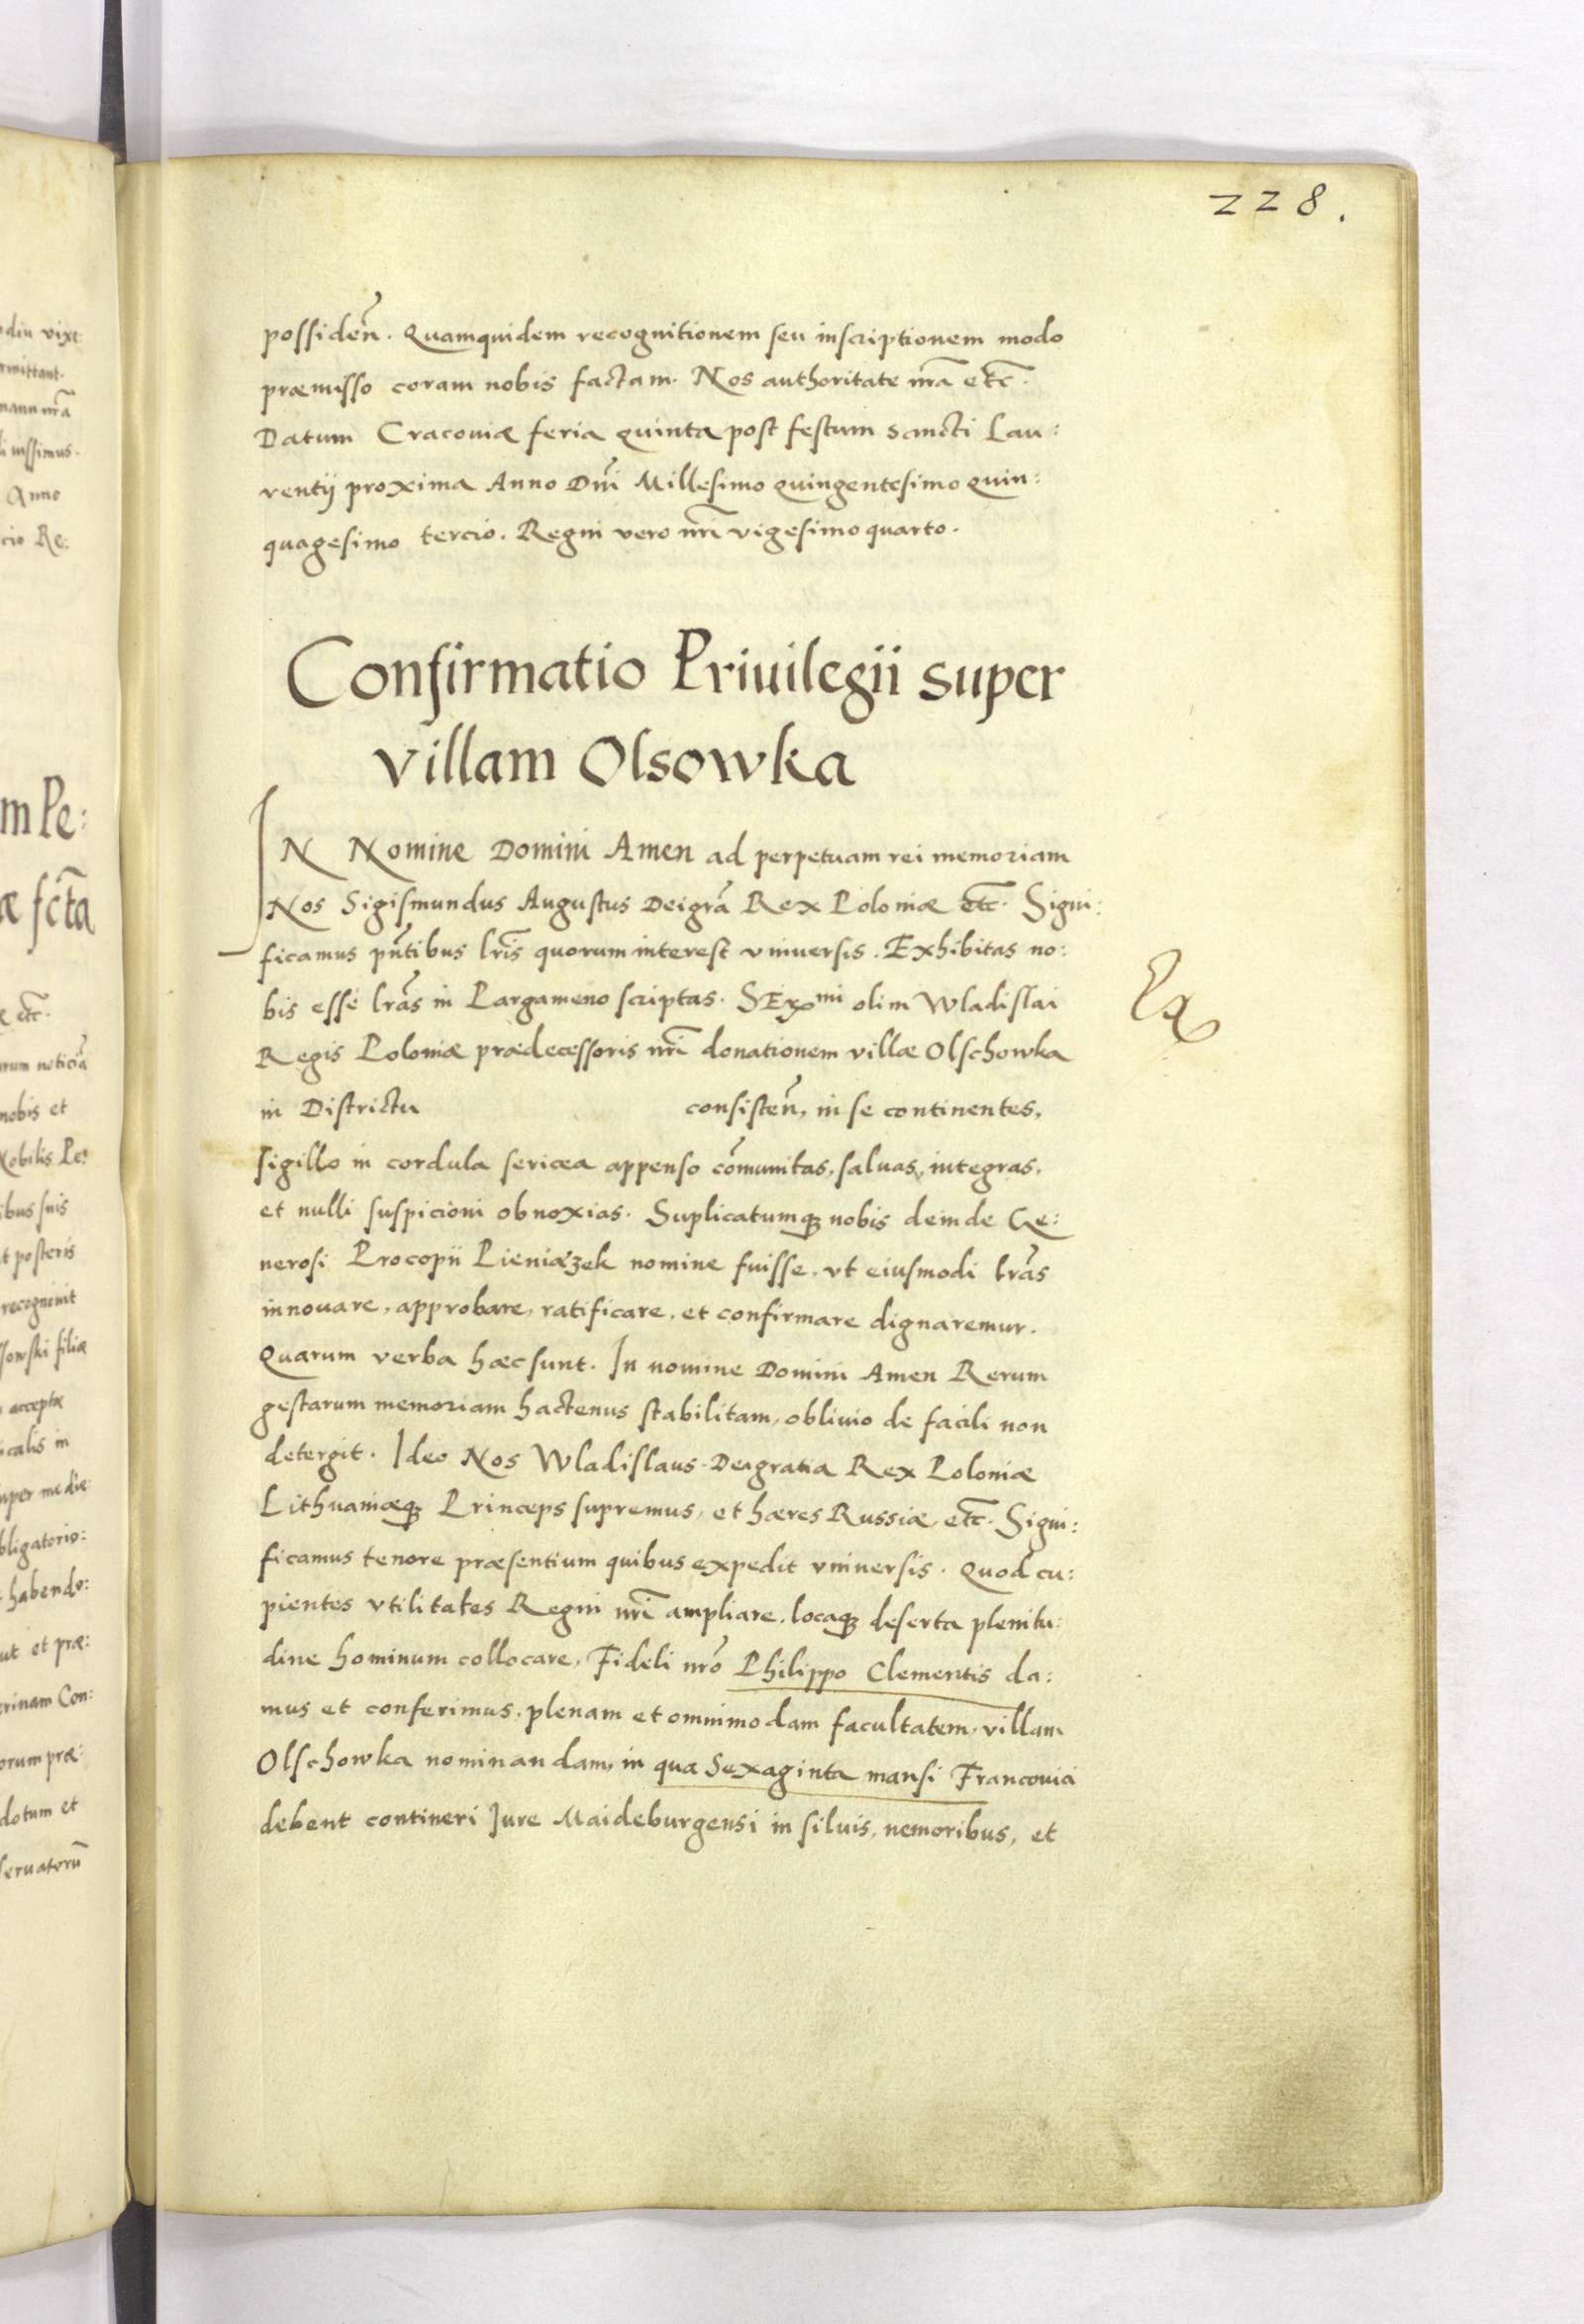 228.
possiden̄. Quamquidem recognitionem seu inscriptionem modo
præmisso coram nobis factam. Nos authoritate nr̄a etc̄.
Datum Cracoviæ feria quinta post festum sancti Lau:
rentÿ proxima Anno Dn̄i Millesimo quingentesimo quin:
quagesimo tercio. Regni vero nr̄i vigesimo quarto.
Confirmatio Priuilegii super
villam Olsowka
IN Nomine Domini Amen ad perpetuam rei memoriam
Nos Sigismundus Augustus Deigrā Rex Poloniæ etc̄. Signi:
ficamus pn̄tibus lr̄is quorum interest vniuersis. Exhibitas no:
bis esse lr̄as in Pargameno scriptas. Ser mi olim Wladislai
Regis Poloniæ prædecessoris nr̄i donationem villæ Olschowka
in Districtu consisten̄, in se continentes,
sigillo in cordula sericea appenso cōmunitas, saluas, integras,
et nulli suspicioni obnoxias. Suplicatumq; nobis deinde Ge:
nerosi Procopii Pieniązek nomine fuisse, vt eiusmodi lr̄as
innouare, approbare, ratificare, et confirmare dignaremur.
Quarum verba hæc sunt. In nomine Domini Amen Rerum
gestarum memoriam hactenus stabilitam, obliuio de facili non
detergit. Ideo Nos Wladislaus Deigratia Rex Poloniæ
Lithuaniæq; Princeps supremus, et hæres Russiæ, etc̄. Signi:
ficamus tenore præsentium quibus expedit vniuersis. Quod cu:
pientes vtilitates Regni nr̄i ampliare, locaq; deserta plenitu:
dine hominum collocare, Fideli nr̄o Philippo Clementis da:
mus et conferimus, plenam et omnimodam facultatem, villam
Olschowka nominandam, in qua Sexaginta mansi Franconici
debent contineri Jure Maideburgensi in siluis, nemoribus, et